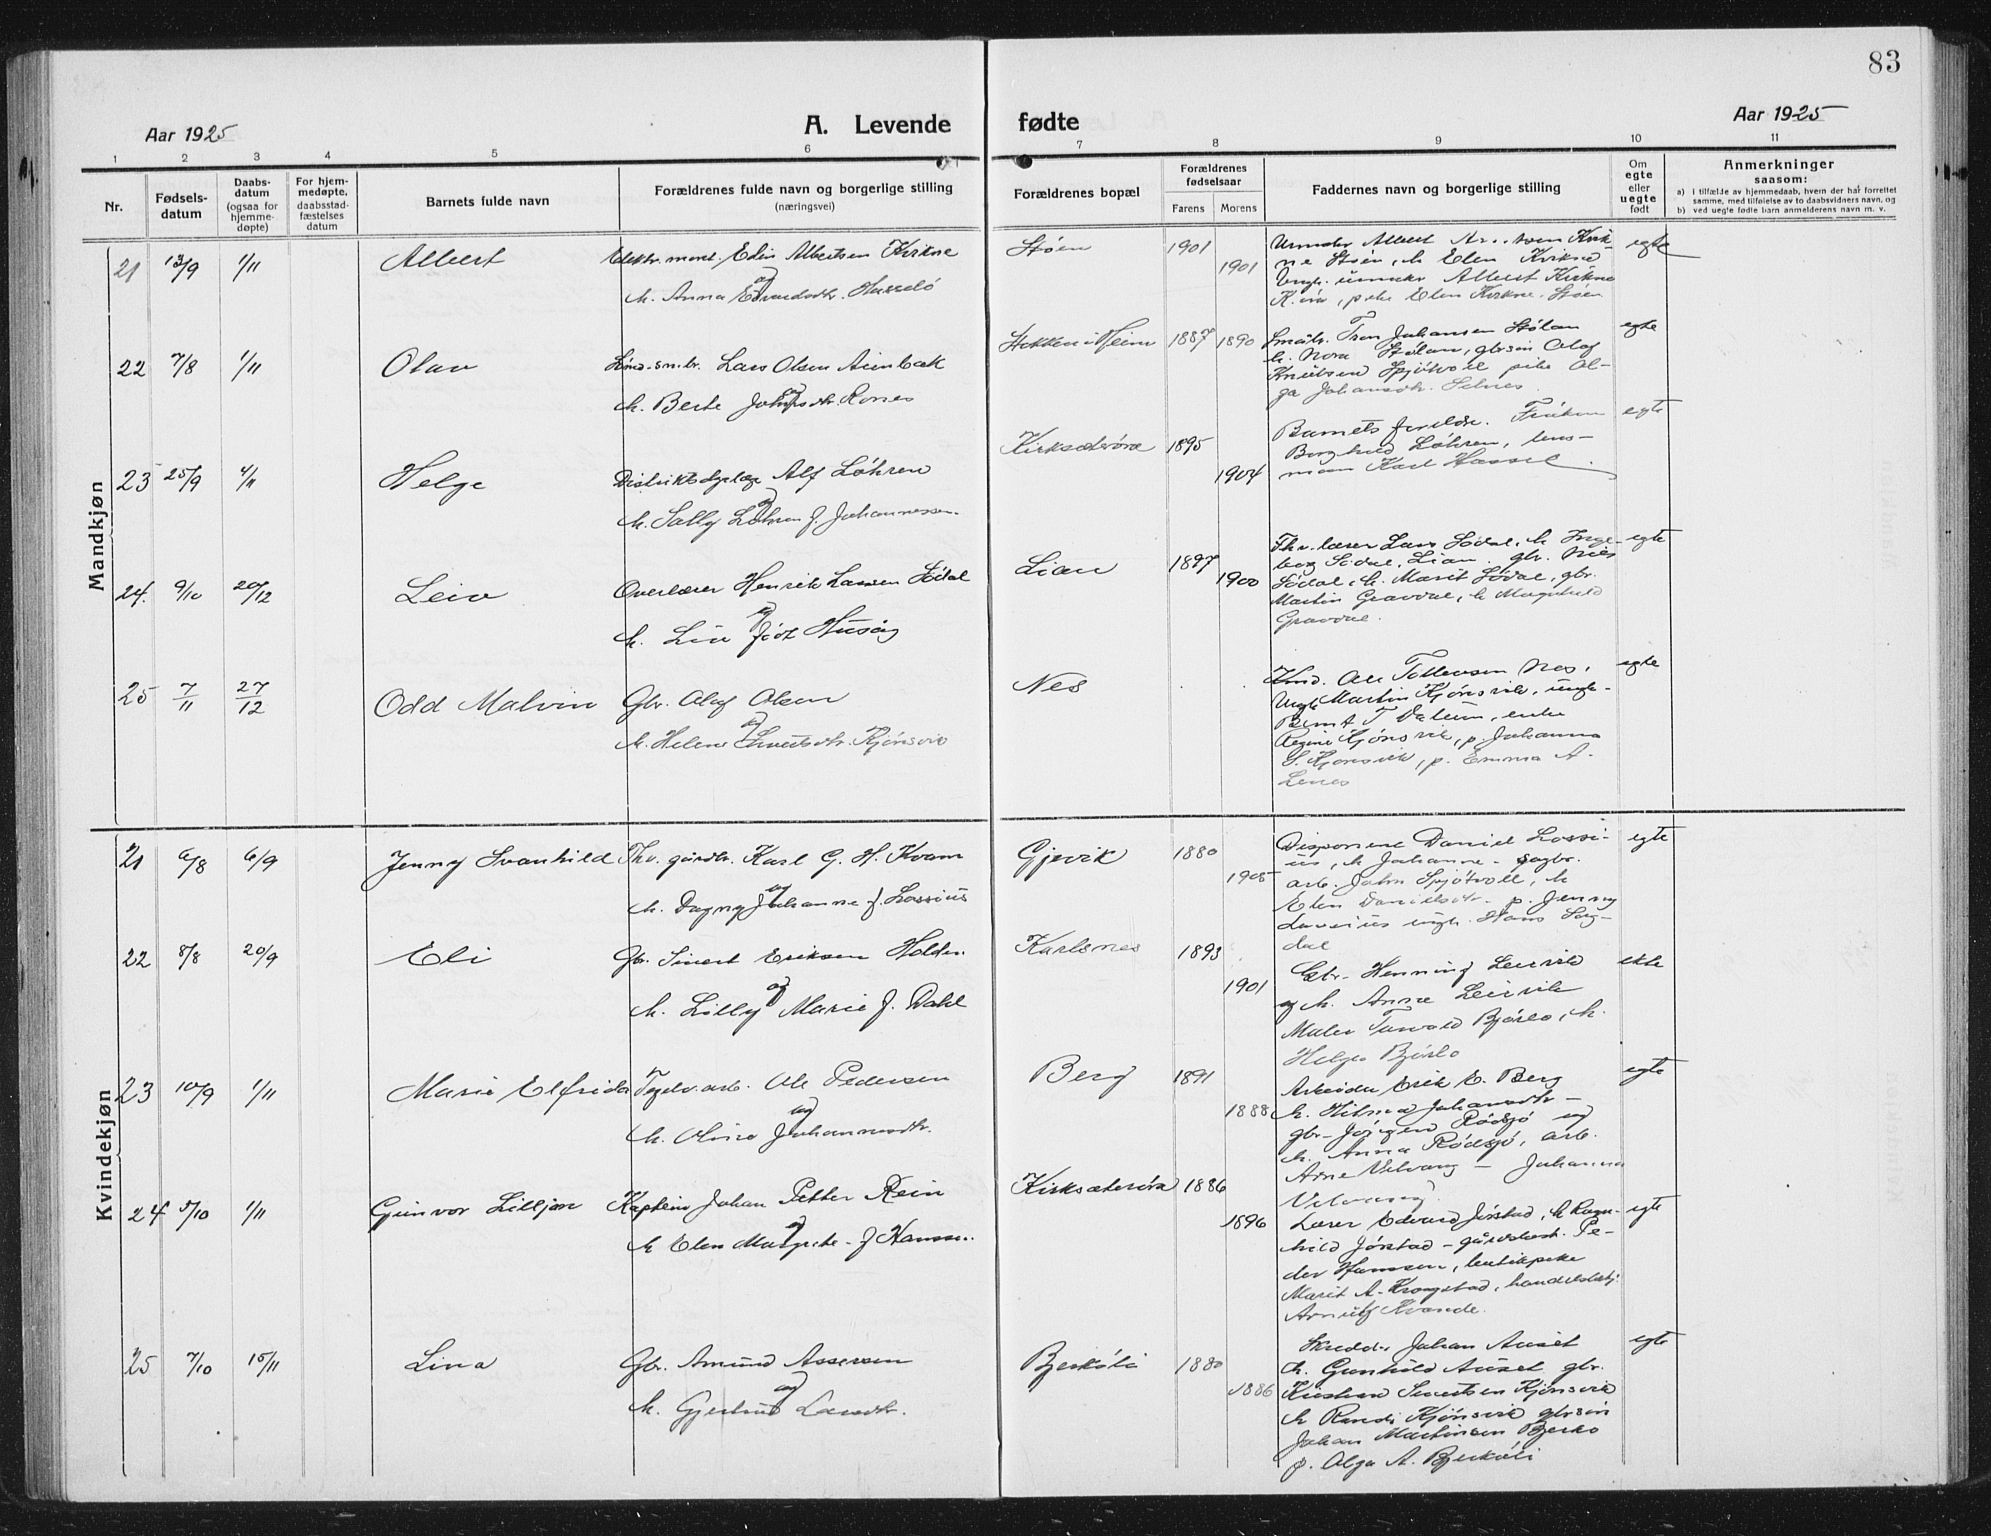 83
Aar 1925
A. Levende
fødte
Aar 1925
1 2 3 4 5 6 7 8 9 10 11
Nr.
Fødsels-
datum
Daabs-
datum
(ogsaa for
hjemme-
døpte)
For hjem-
medøpte,
daabsstad-
fæstelses
datum
Barnets fulde navn
Forældrenes fulde navn og borgerlige stilling
(næringsvei)
Forældrenes bopæl
Forældrenes
fødselsaar
Farens
Morens
Faddernes navn og borgerlige stilling
Om
egte
eller
uegte
født
Anmerkninger
saasom:
a) i tilfælde av hjemmedaab, hvem der har forrettet
samme, med tilføielse av to daabsvidners navn, og
b) ved uegte fødte barn anmelderens navn m. v.
Mandkjøn
21 13/9 1/11 Albert
Edin Albertsen Kirkne
og
k. Anna Hasselø
Støen 1901 1901
Albert
Støen, k. Elen Kirksæ
Albert Kirkne
pike Elen Kirkne Støen
egte
22 7/8 1/11 Olav
Lars Olsen
og
k. Berte Johnsdtr. Rones
1887 1890
Johansen Stølan
k. Nora Stølan, gbrsøn Olaf
Knutsen Spjøtvoll pike Ol-
ga Johansdtr. Selnes
egte
23 25/9 4/11 Helge
Distriktslæge Alf Løhren
og
k. Sally Løhren f. Johannessen
Kirksæterøra 1895 1904
Barnets forældre. Frøken
Borghild Løhren, lens-
mann Karl Hassel
egte
24. 9/10 20/12 Leiv
Overlærer Henrik Larsen Södal
og
k. Liv født Husøy
Lian 1897 1900
Fhv. lærer Lars Södal, k. Inge-
borg Södal, Lian, gbr. Nils
Södal, k. Marit Södal, gbr.
Martin Gravdal, k. Magnhild
Gravdal.
egte
25 7/11 27/12 Odd Malvin
Gbr. Olaf Olsen
og
k. Helene Sivertsdtr. Kjönsvik
Nes
Ole Tollevsen Nes,
Ungk. Martin Kjönsvik, ungk.
Bernt T Dalum, enke
Regine Kjönsvik, p. Johanna
S. Kjönsvik, p. Emma A.
Lenes
egte
Kvindekjøn
21 6/8 6/9 Jenny Svanhild
Fhv. gårdbr. Karl G. H. Kvam
og
k. Dagny Johanne f. Lossius
Gjevik 1880 1905
Disponent Daniel Lossi-
us, k Johanne - sagbr.
arb. John Spjötvoll, k
Elen Danielsdtr. p. Jenny
Lossius ungk. Hans Sog-
dal
egte
22 8/8 20/9 Eli
Gbr. Sivert Eriksen Holden
og
k. Lilly Marie f. Dahl
Karlsnes 1893 1901
Gbr. Henning Leirvik
og k. Anne Leirvik
Maler Bjørlo, k.
Helga Bjørlo
ekte
23 10/9 1/11 Marie Elfrida
arb. Ole Pedersen
og
k. Olina Johannesdtr.
Berg 1891 1888
Arbeider Erik E. Berg
k. Hilma Johansdtr -
gbr- Jörgen Rödsjö og
k. Anna Rödsjö, arb.
Arne Vilvang - Johanna
Vilvang
egte
24 5/10 1/11 Gunvor Lilljan
Kaptein Johan Petter Rein
og
k Elen Margrete - f Hanssen.
Kirksæterøra 1886 1896
Lærer Edvard Jørstad, k Ragn-
hild Jørstad - gårdbest. Pe-
der Hanssen, butikpike
Marit A. Krongstad, handelsbetj.
Arnulf Kvande.
egte
25 7/10 15/11 Lina
Gbr. Amund Assersen
og
k. Gjertrud Larsdtr.
Bjerköli 1880 1886
Skredder Johan Auset
k. Gunhild Auset gbr.
Kristian Sivertsen Kjönsvik
k Randi Kjönsvik gbrsön
Johan Martinsen Bjerkö
p. Olga A. Bjerköli
egte